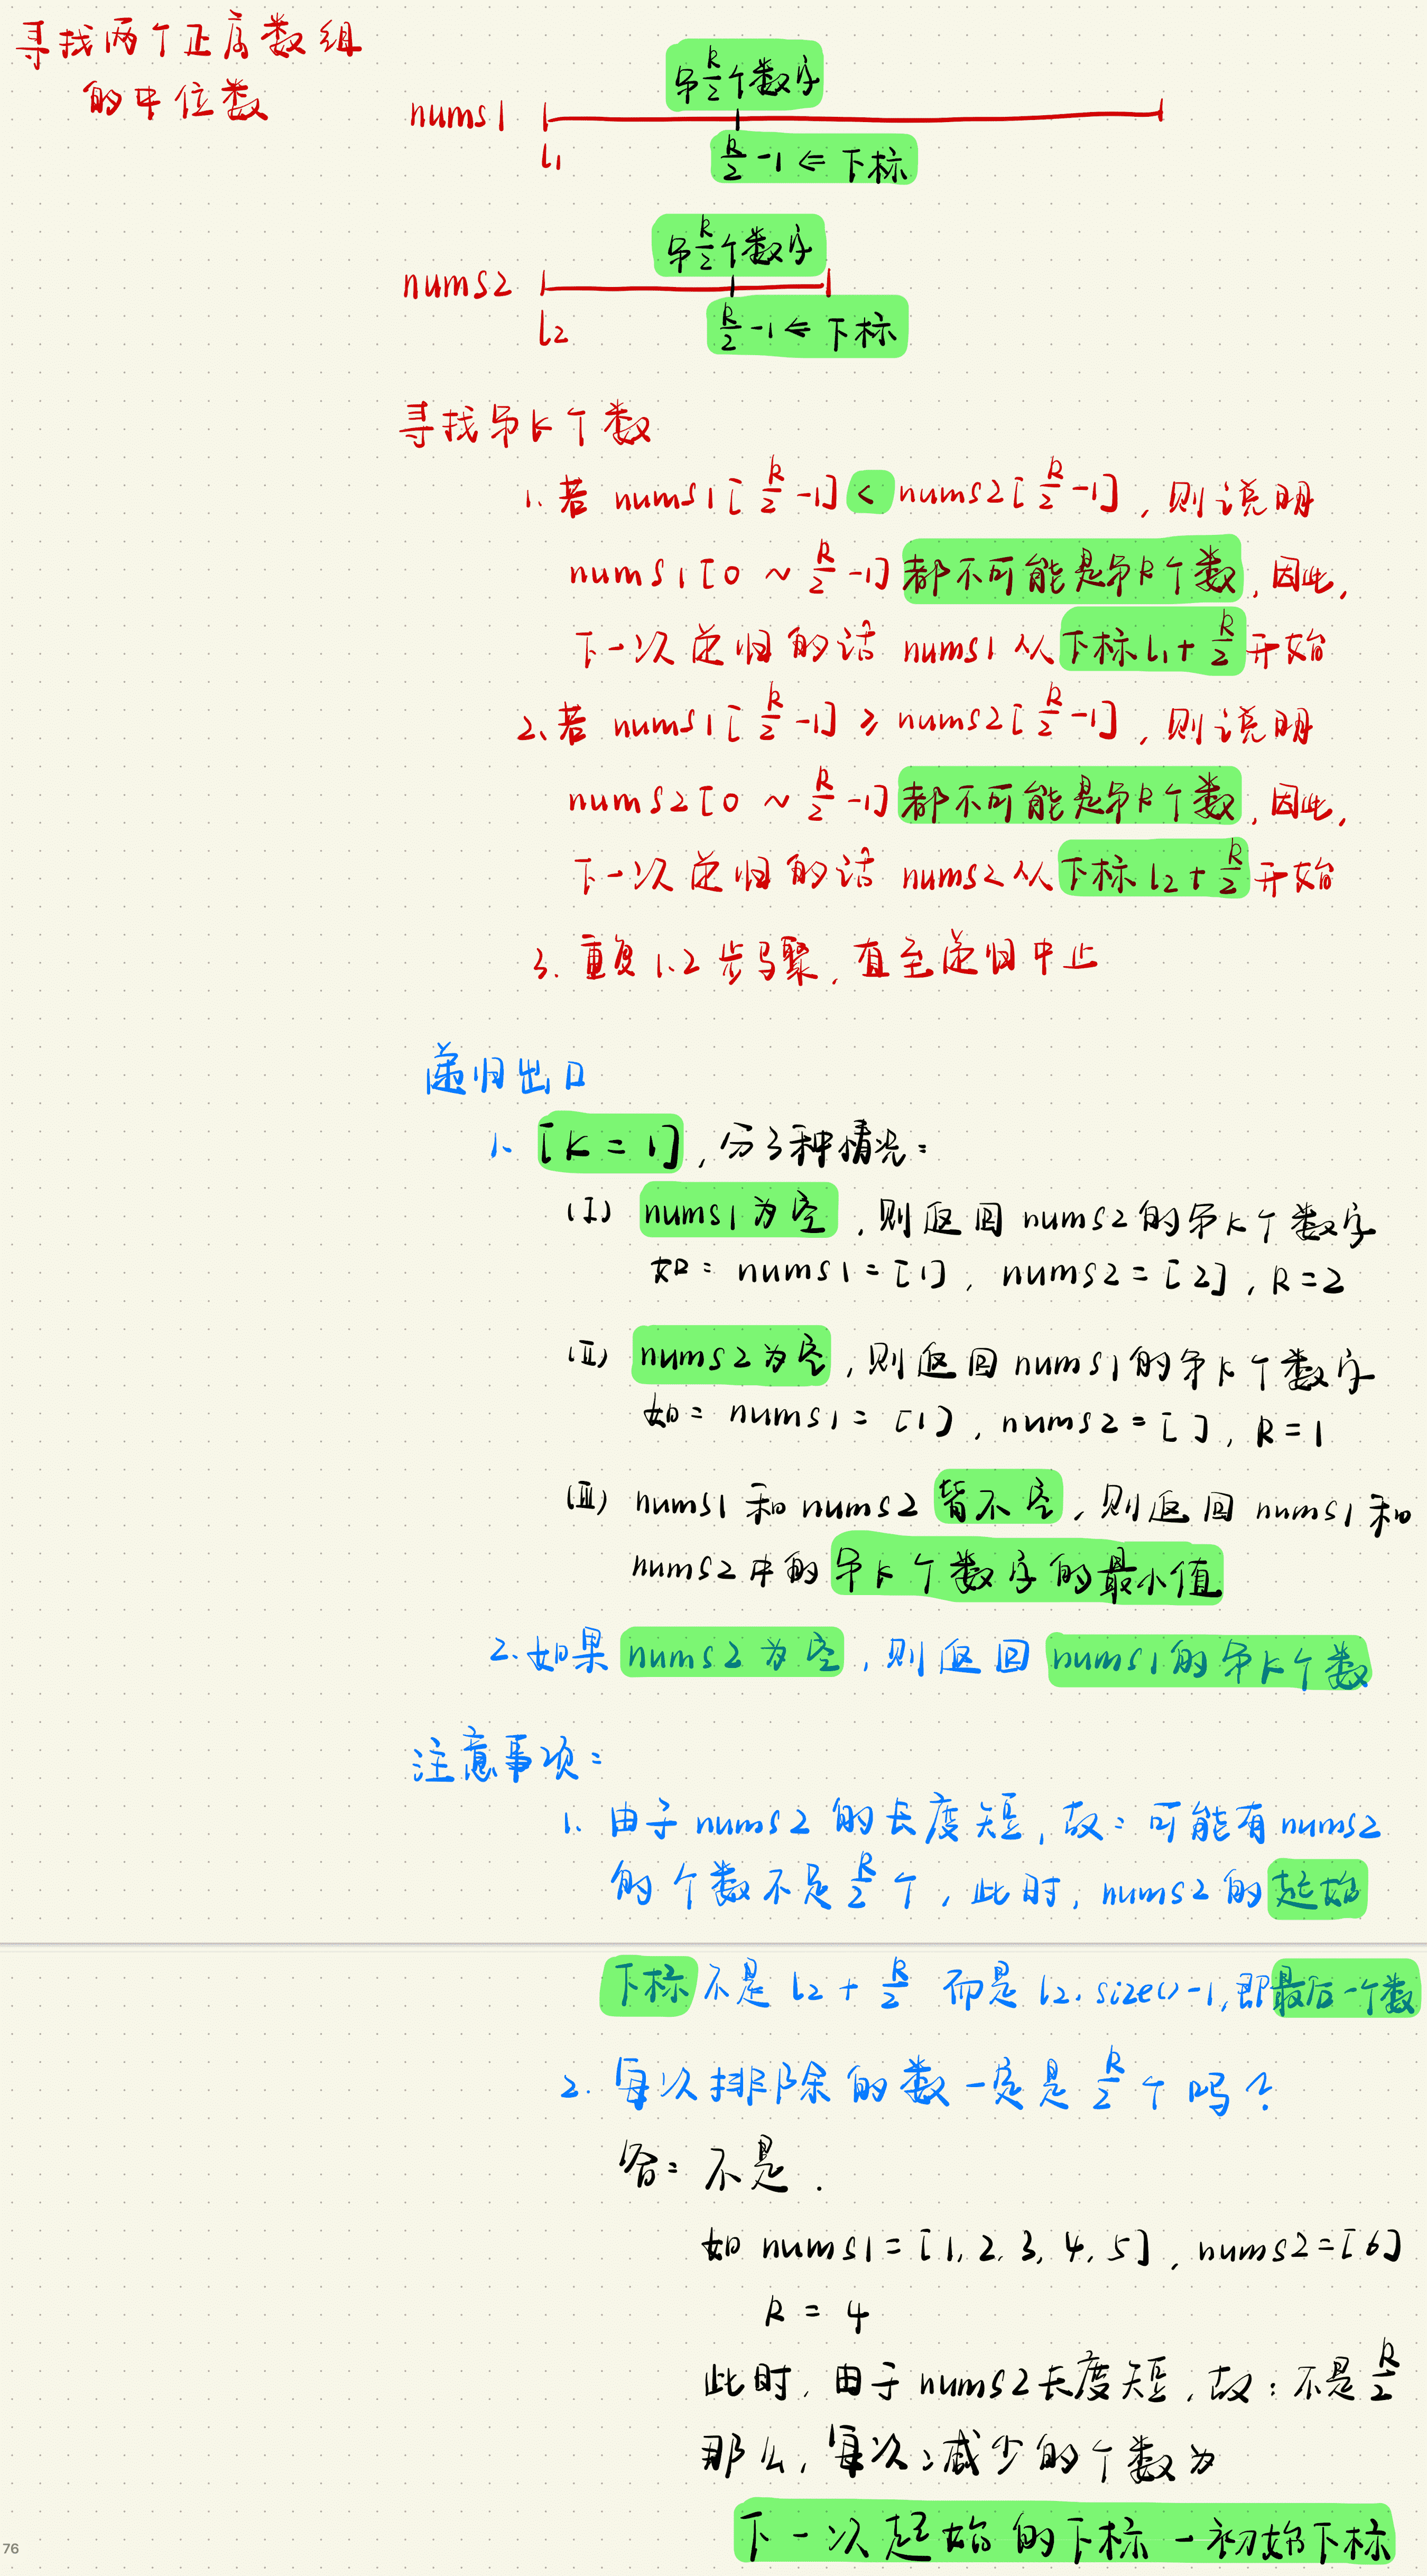 寻找两个正序数组
的中位数
第k/2个数字
nums1
l1
k/2-1 ⇐ 下标
第k/2个数字
nums2
l2
k/2-1 ⇐ 下标
寻找第k个数
1. 若 nums1[k/2-1] < nums2[k/2-1], 则说明
nums1[0 ~ k/2-1] 都不可能是第k个数, 因此,
下一次递归的话 nums1 从下标 l1+k/2 开始
2. 若 nums1[k/2-1] ≥ nums2[k/2-1], 则说明
nums2[0 ~ k/2-1] 都不可能是第k个数, 因此,
下一次递归的话 nums2 从下标 l2+k/2 开始
3. 重复1.2步骤, 直至递归中止
递归出口
1. [k=1], 分3种情况:
(I) nums1为空, 则返回 nums2的第k个数字
如: nums1=[1], nums2=[2], k=2
(II) nums2为空, 则返回 nums1的第k个数字
如: nums1=[1], nums2=[ ], k=1
(III) nums1 和 nums2 皆不空, 则返回 nums1 和
nums2中的第k个数字的最小值
2. 如果 nums2为空, 则返回 nums1的第k个数
注意事项:
1. 由于 nums2 的长度短, 故: 可能有 nums2
的个数不是k/2个, 此时, nums2的起始
下标不是 l2+k/2 而是 l2.size()-1, 即最后一个数
2. 每次排除的数一定是k/2个吗?
答: 不是.
如 nums1=[1,2,3,4,5], nums2=[6]
k = 4
此时, 由于 nums2长度短, 故: 不是k/2
那么, 每次减少的个数为
下一次起始的下标 - 初始下标
76